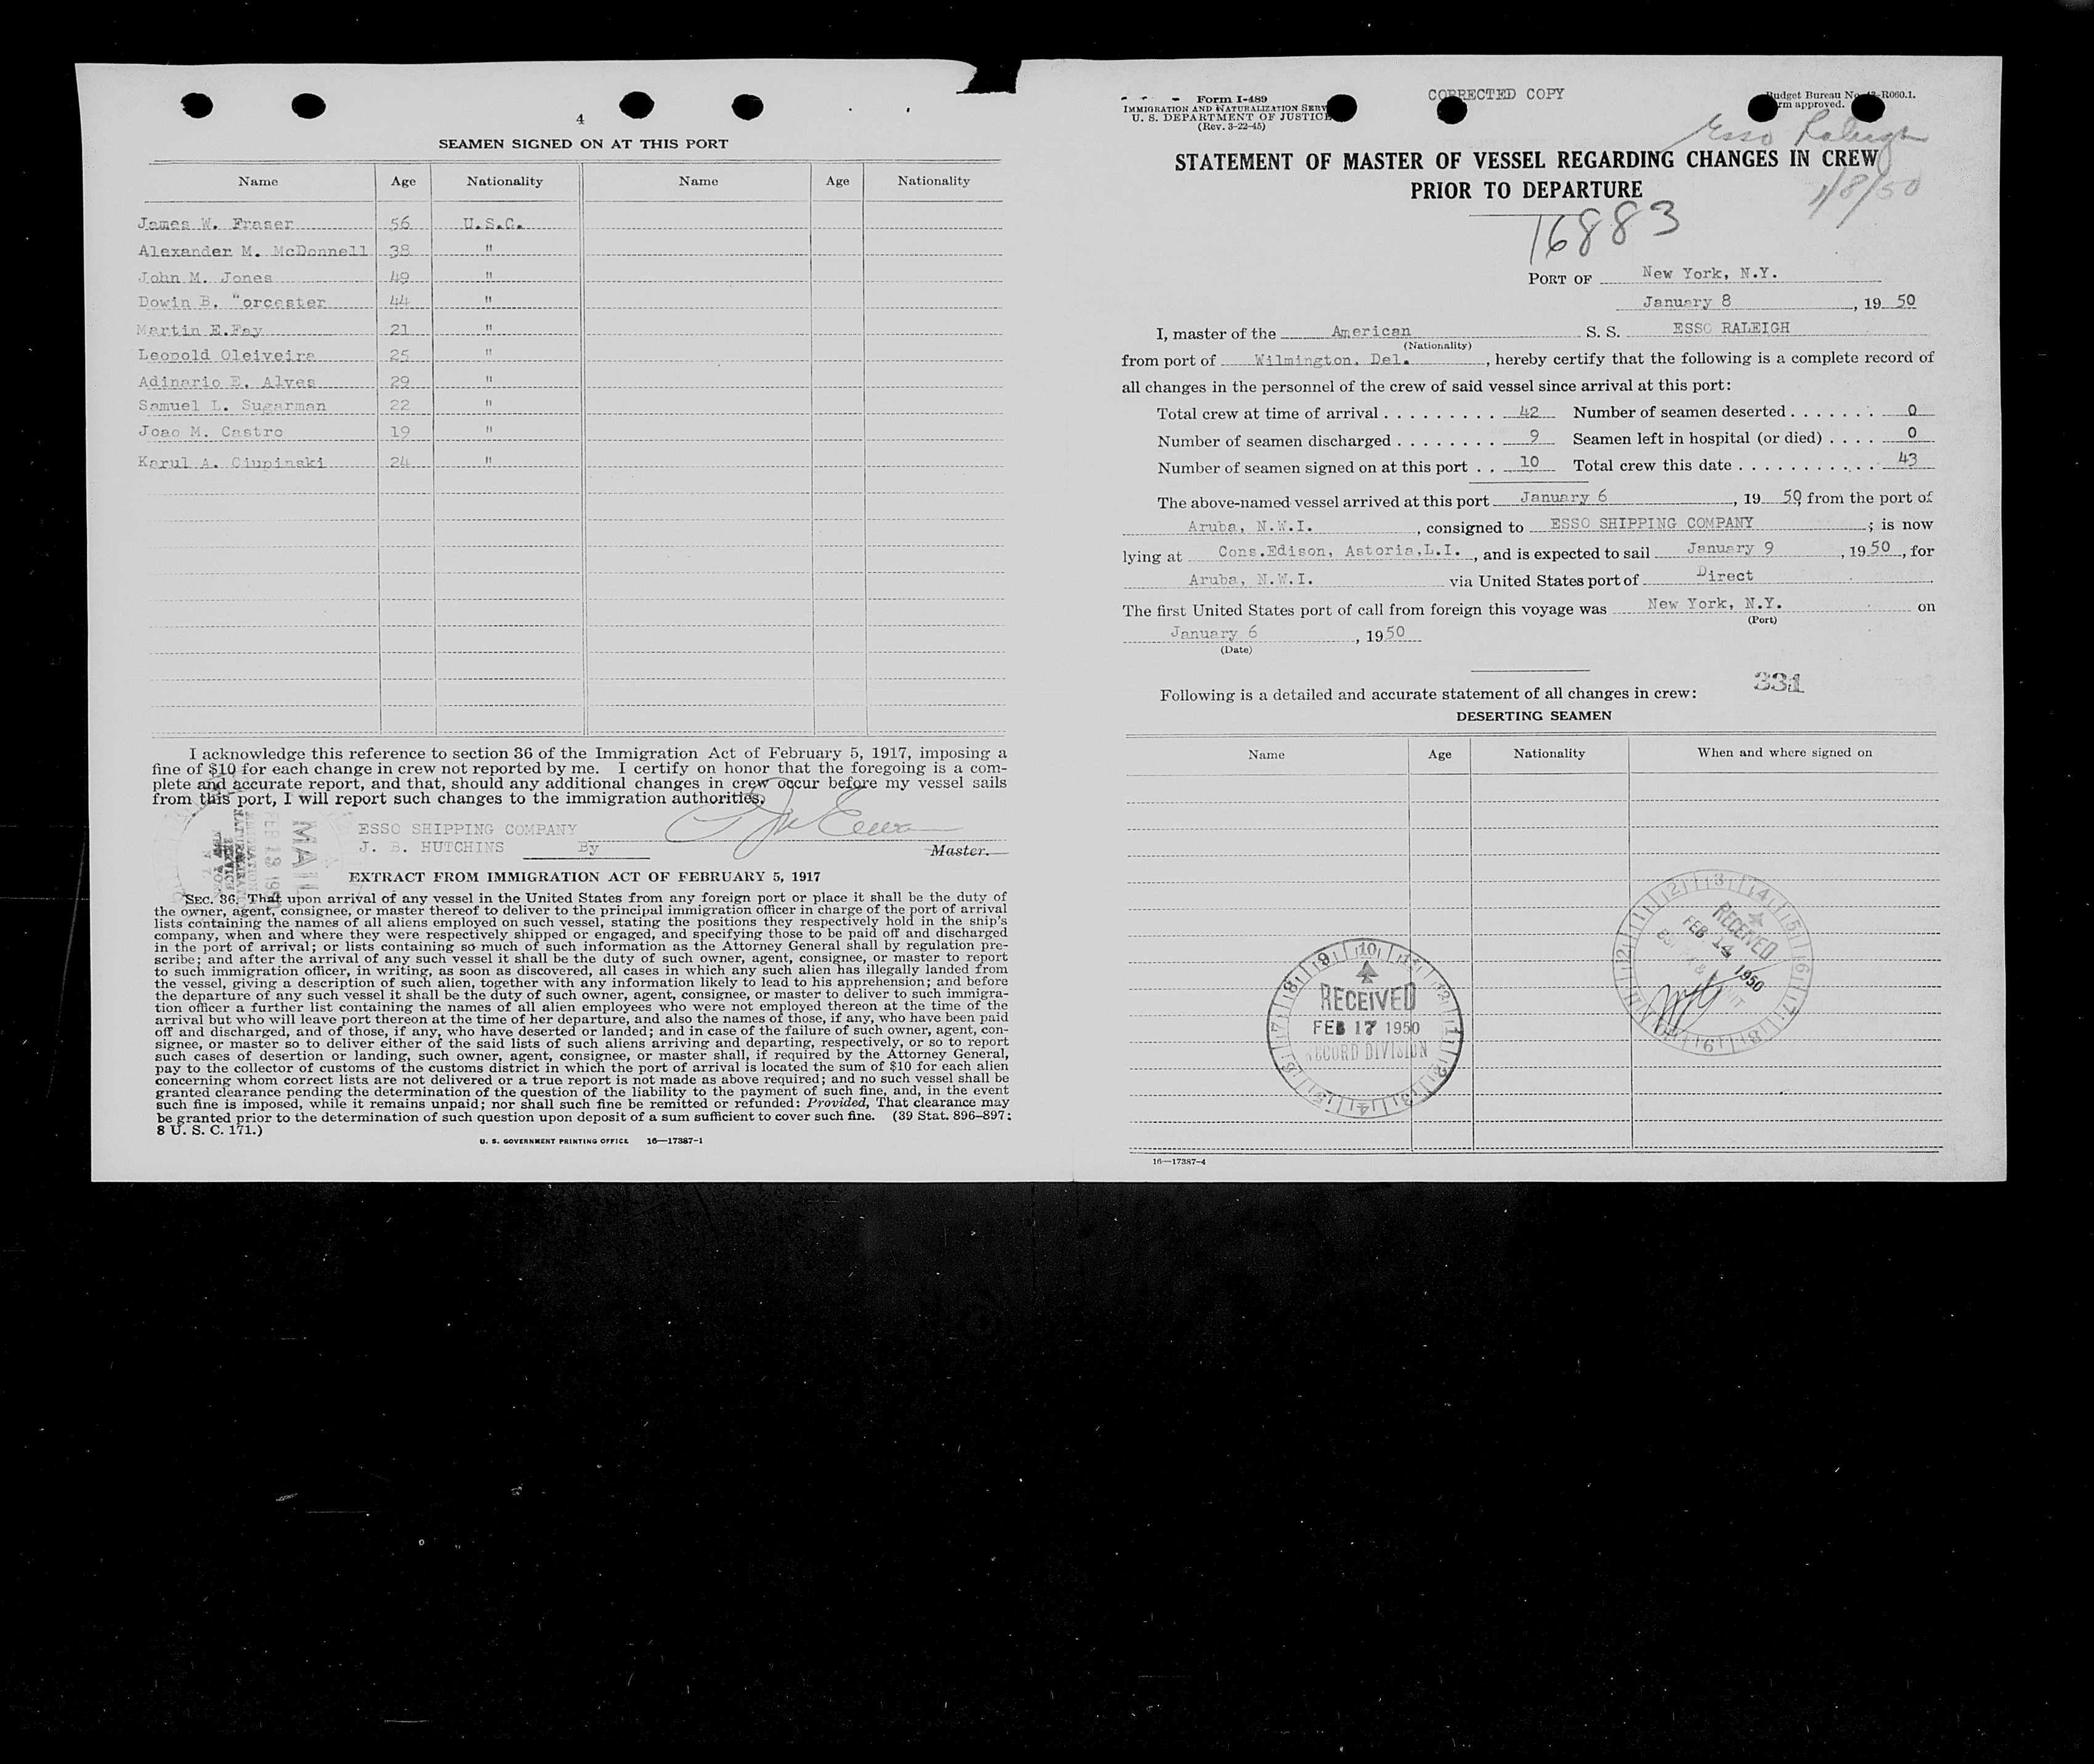 4
SEAMEN SIGNED ON AT THIS PORT
Name Age Nationality Name Age Nationality
James W. Fraser 56 U.S.C.
Alexander M. McDonnell 38 "
John M. Jones 49 "
Dowin B. "orcester 44 "
Martin E.Fay 21 "
Leopold Oleiveira 25 "
Adinario E. Alves 29 "
Samuel L. Sugarman 22 "
Joao M. Castro 19 "
Karul A. Ciupinski 24 "
I acknowledge this reference to section 36 of the Immigration Act of February 5, 1917, imposing a
fine of $10 for each change in crew not reported by me. I certify on honor that the foregoing is a com-
plete and accurate report, and that, should any additional changes in crew occur before my vessel sails
from this port, I will report such changes to the immigration authorities.
MAIL
FEB 19 195
ESSO SHIPPING COMPANY
J. B. HUTCHINS By Master.
EXTRACT FROM IMMIGRATION ACT OF FEBRUARY 5, 1917
SEC. 36. That upon arrival of any vessel in the United States from any foreign port or place it shall be the duty of
the owner, agent, consignee, or master thereof to deliver to the principal immigration officer in charge of the port of arrival
lists containing the names of all aliens employed on such vessel, stating the positions they respectively hold in the ship's
company, when and where they were respectively shipped or engaged, and specifying those to be paid off and discharged
in the port of arrival; or lists containing so much of such information as the Attorney General shall by regulation pre-
scribe; and after the arrival of any such vessel it shall be the duty of such owner, agent, consignee, or master to report
to such immigration officer, in writing, as soon as discovered, all cases in which any such alien has illegally landed from
the vessel, giving a description of such alien, together with any information likely to lead to his apprehension; and before
the departure of any such vessel it shall be the duty of such owner, agent, consignee, or master to deliver to such immigra-
tion officer a further list containing the names of all alien employees who were not employed thereon at the time of the
arrival but who will leave port thereon at the time of her departure, and also the names of those, if any, who have been paid
off and discharged, and of those, if any, who have deserted or landed; and in case of the failure of such owner, agent, con-
signee, or master so to deliver either of the said lists of such aliens arriving and departing, respectively, or so to report
such cases of desertion or landing, such owner, agent, consignee, or master shall, if required by the Attorney General,
pay to the collector of customs of the customs district in which the port of arrival is located the sum of $10 for each alien
concerning whom correct lists are not delivered or a true report is not made as above required; and no such vessel shall be
granted clearance pending the determination of the question of the liability to the payment of such fine, and, in the event
such fine is imposed, while it remains unpaid; nor shall such fine be remitted or refunded: Provided, That clearance may
be granted prior to the determination of such question upon deposit of a sum sufficient to cover such fine. (39 Stat. 896–897;
8 U. S. C. 171.)
U. S. GOVERNMENT PRINTING OFFICE 16—17387-1
Form I-489
IMMIGRATION AND NATURALIZATION SERV
U. S. DEPARTMENT OF JUSTICE
(Rev. 3-22-45)
CORRECTED COPY
Budget Bureau No. -R060.1.
rm approved.
Esso Raleigh
1/8/50
STATEMENT OF MASTER OF VESSEL REGARDING CHANGES IN CREW
PRIOR TO DEPARTURE
16883
PORT OF New York, N.Y.
January 8, 19 50
I, master of the American S. S. ESSO RALEIGH
(Nationality)
from port of Wilmington, Del., hereby certify that the following is a complete record of
all changes in the personnel of the crew of said vessel since arrival at this port:
Total crew at time of arrival . . . . . . . . . 42 Number of seamen deserted . . . . . . . 0
Number of seamen discharged . . . . . . . . 9 Seamen left in hospital (or died) . . . . 0
Number of seamen signed on at this port . . 10 Total crew this date . . . . . . . . . . . . 43
The above-named vessel arrived at this port January 6, 19 50, from the port of
Aruba, N.W.I., consigned to ESSO SHIPPING COMPANY; is now
lying at Cons.Edison, Astoria,L.I., and is expected to sail January 9, 19 50, for
Aruba, N.W.I. via United States port of Direct
The first United States port of call from foreign this voyage was New York, N.Y. on
(Port)
January 6, 19 50
(Date)
Following is a detailed and accurate statement of all changes in crew: 331
DESERTING SEAMEN
Name Age Nationality When and where signed on
RECEIVED
FEB 14 1950
RECEIVED
FEB 17 1950
RECORD DIVISION
16—17387-4